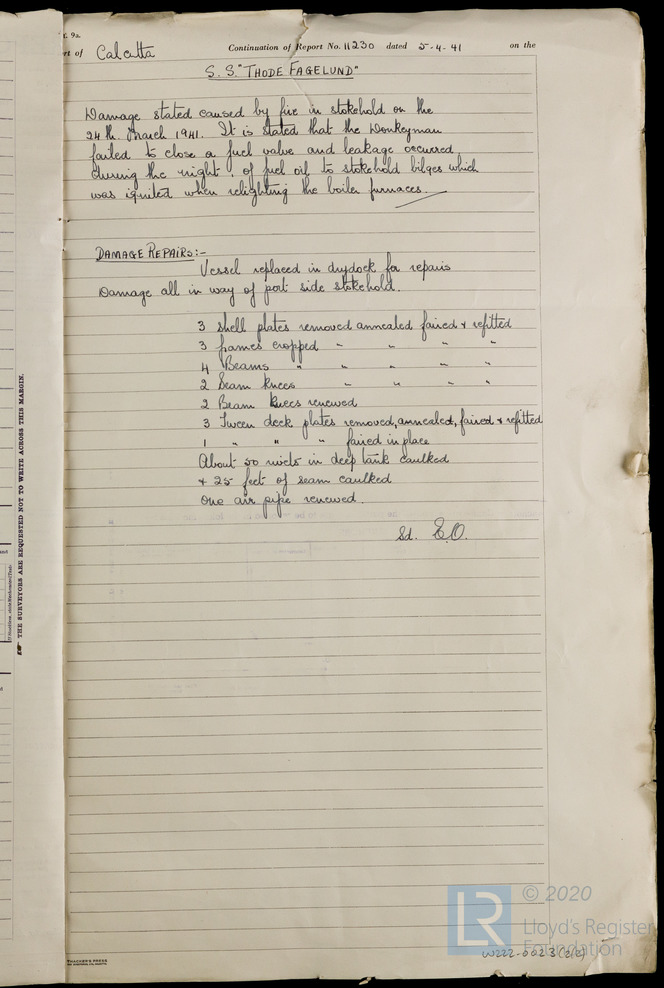 t. 9a.
rt of Calcutta Continuation of Report No. 11230 dated 5-4-41 on the
S.S. "THODE FAGELUND"
Damage stated caused by fire in stokehold on the
24th March 1941. It is stated that the Donkeyman
failed to close a fuel valve and leakage occurred
during the night, of fuel oil to stokehold bilges which
was ignited when relighting the boiler furnaces.
DAMAGE REPAIRS:-
Vessel replaced in drydock for repairs
Damage all in way of port side stokehold.
3 shell plates removed annealed faired & refitted
3 frames cropped " " " "
4 Beams " " " " "
2 Beam knees " " " "
2 Beam knees renewed
3 Tween deck plates removed, annealed, faired & refitted
1 " " " faired in place
About 50 rivets in deep tank caulked
& 25 feet of seam caulked
One air pipe renewed.
Sd. E.O.
THE SURVEYORS ARE REQUESTED NOT TO WRITE ACROSS THIS MARGIN.
THACKER'S PRESS
LR © 2020
Lloyd's Register
Foundation
W222-0023(2/2)